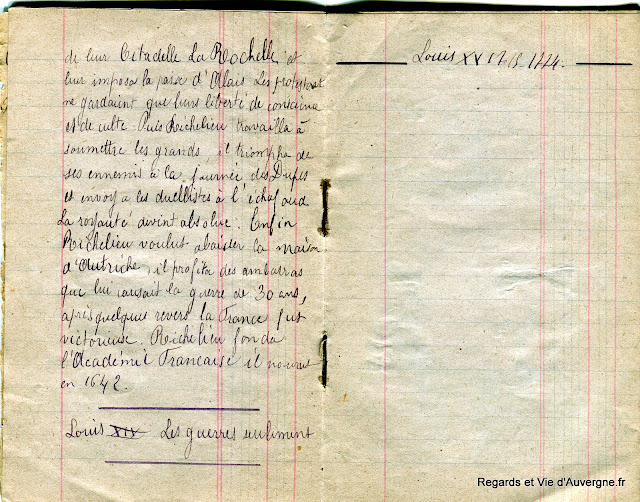 de leur Citadelle La Rochelle et
leur imposa la paix d'Alais Les protestant
ne gardaint que leurs liberté de
et de culte Puis Richelieu travailla à
soumettre les grands il triompha de
ses ennemis à la journée des Dupes
et envoya les duellistes à l'échafaud
La royauté devint absolue. Enfin
Richelieu voulut abaisser la maison
d'Autriche, il profita des ambarras
que lui causait la guerre de 30 ans,
après quelques revers la France fut
victorieuse. Richelieu fonda
l'Académie Francaise il mourut
en 1642.
Louis XIV Les guerres seulement
Louis XV 1715. 1774.
Regards et Vie d'Auvergne.fr